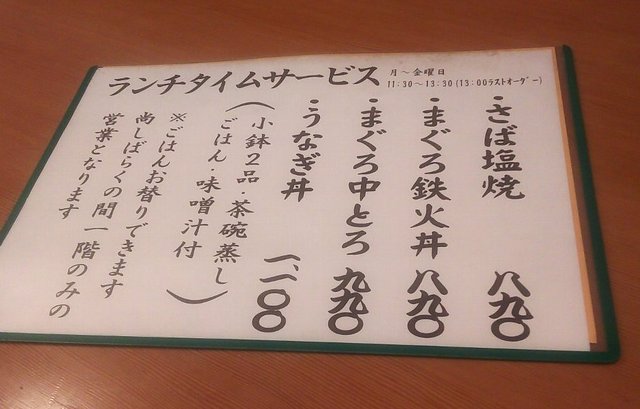 ランチタイムサービス
月～金曜日
11:30～13:30(13:00ラストオーダー)
・さば塩焼 八九〇
・まぐろ鉄火丼 八九〇
・まぐろ中とろ 九九〇
・うなぎ丼 一、一〇〇
(小鉢2品・茶碗蒸し
ごはん・味噌汁付)
※ごはんお替りできます
尚しばらくの間一階のみの
営業となります